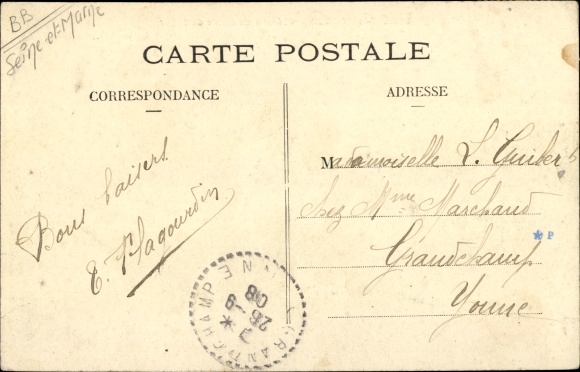 BB
Seine-et-Marne
CARTE POSTALE
CORRESPONDANCE
ADRESSE
Bons baisers
E.
Mademoiselle L. Guibert
chez Mme Marchand
Grandchamp
Yonne
*P
GRANDCHAMP YONNE
26 -9
08